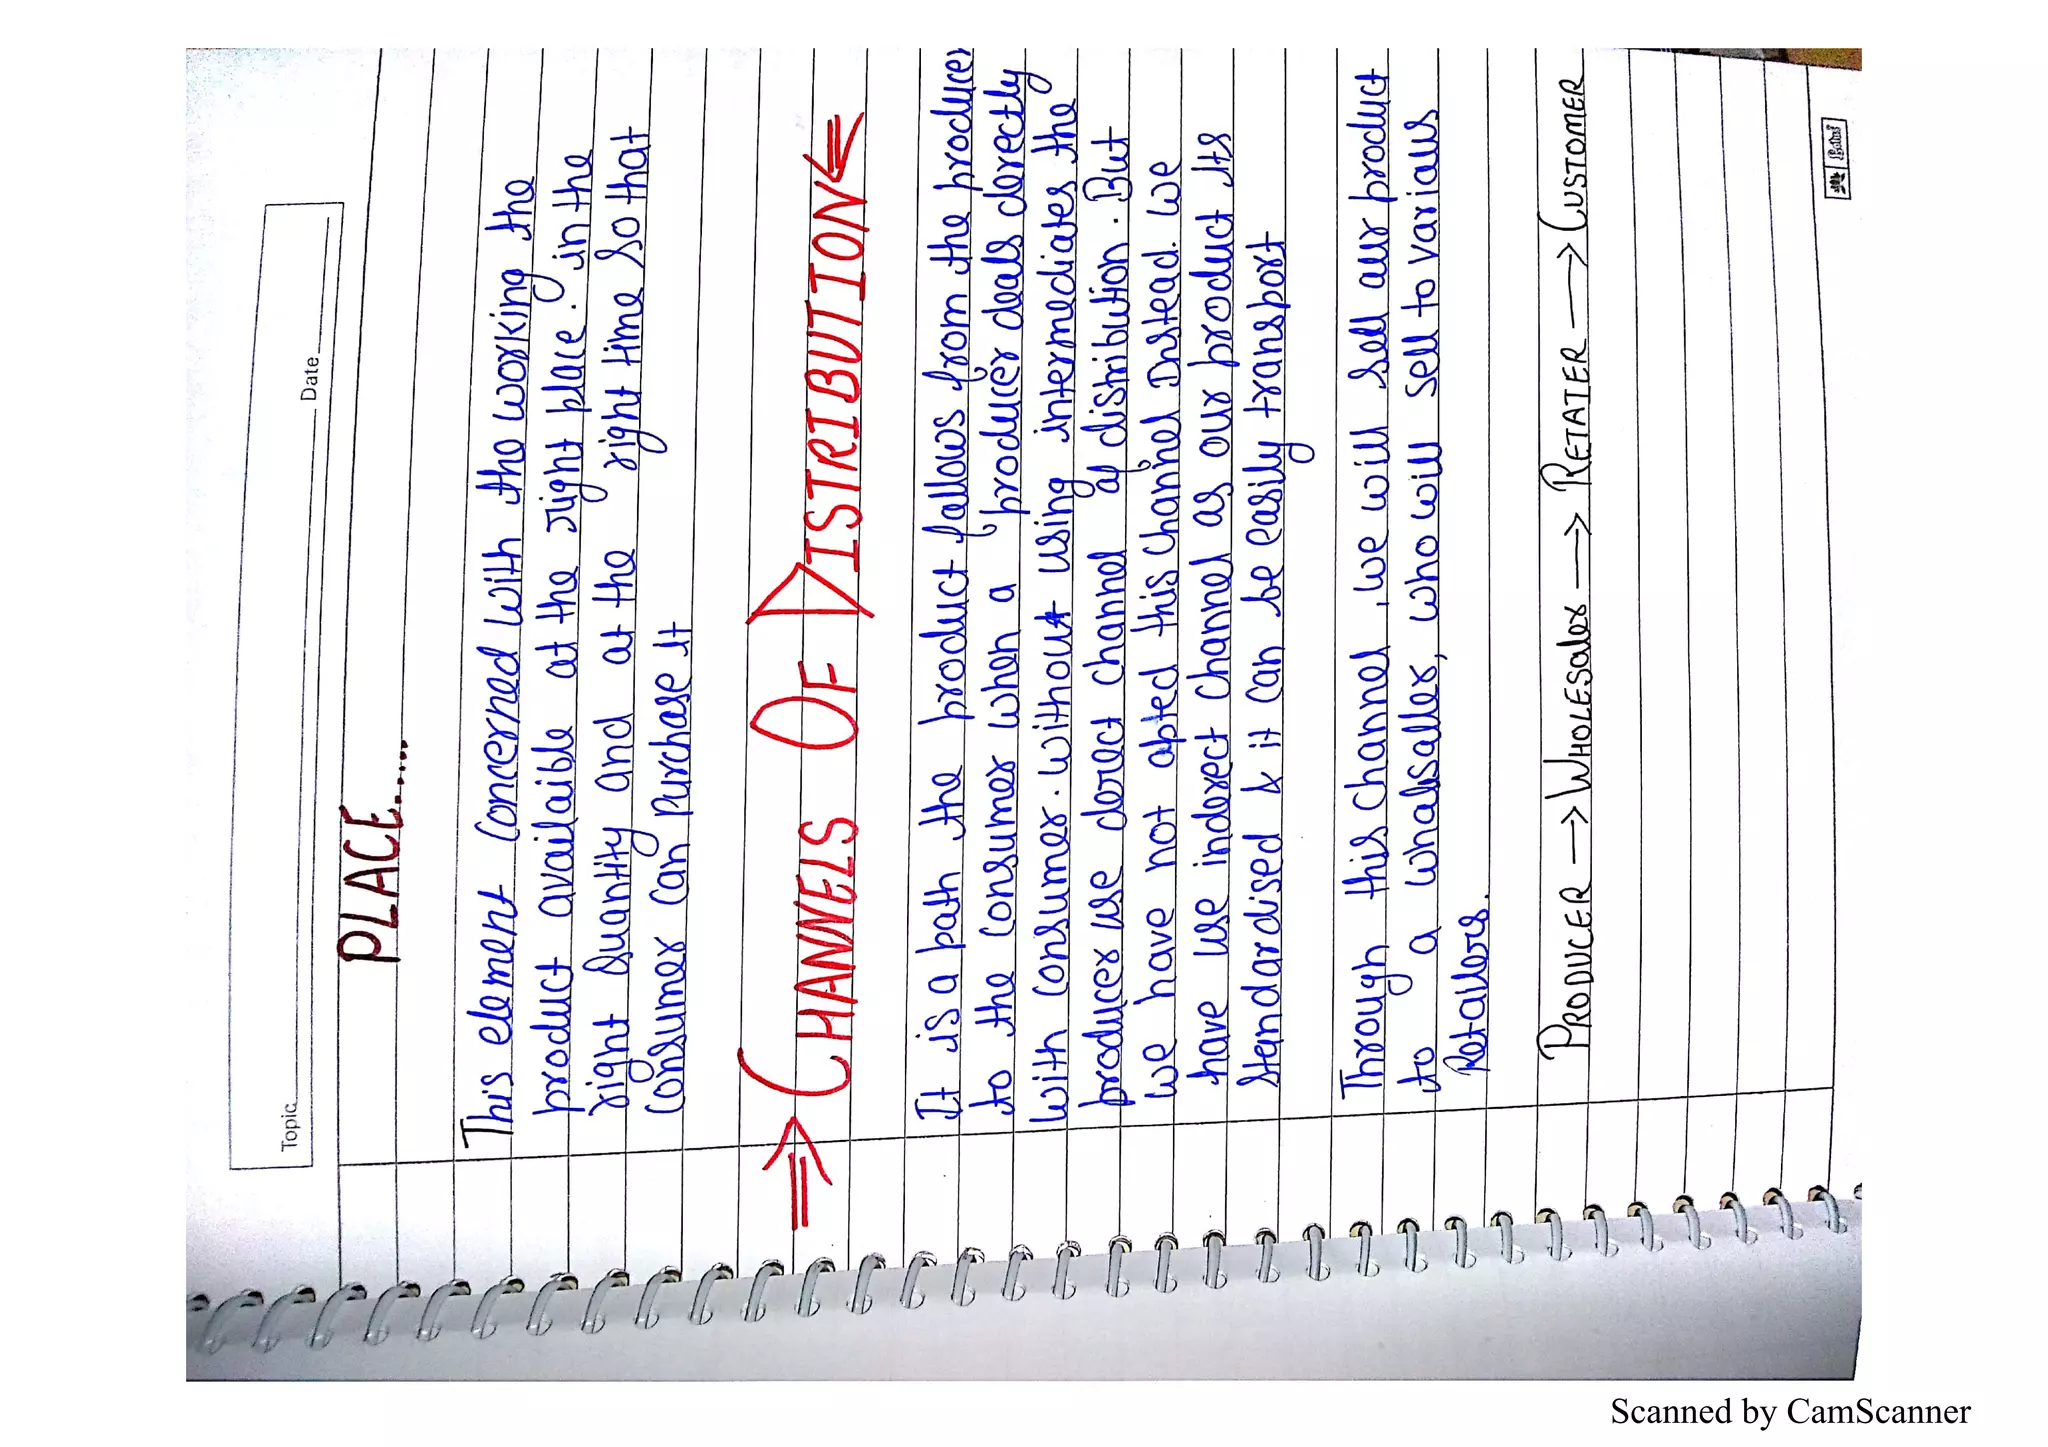 Topic Date
PLACE......
This element Concerned with the working the
product availaible at the right place. in the
right Quantity and at the right time so that
Consumer can purchase it
⇒ CHANNELS OF DISTRIBUTION ⇐
It is a path the product fallows from the producer
to the Consumer when a producer deals derectly
with Consumer. without using intermediates the
producer use derect channel of distribution. But
we have not opted this channel Instead. we
have use inderect channel as our product its
standardised & it can be easily transport
Through this channel, we will sell our product
to a whalsaller, who will sell to various
Retailers.
PRODUCER → WHOLESaler → RETATER → CUSTOMER
Scanned by CamScanner